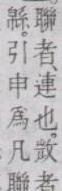 聯者、連也。㪚
緜。引申爲凡聯者